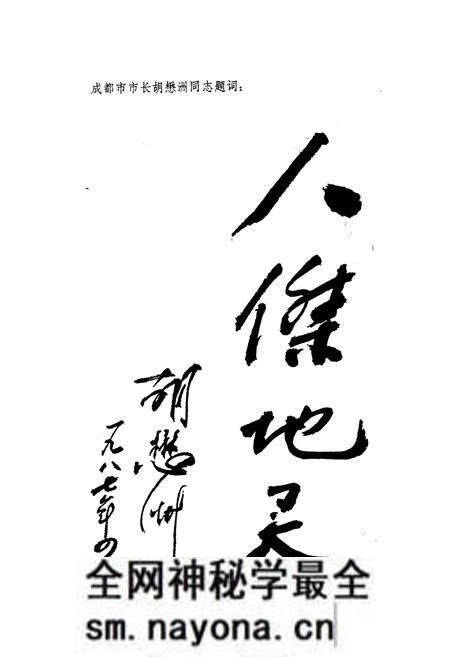 成都市市长胡懋洲同志题词：
人傑地灵
胡懋洲
一九八七年四
全网神秘学最全
sm.nayona.cn